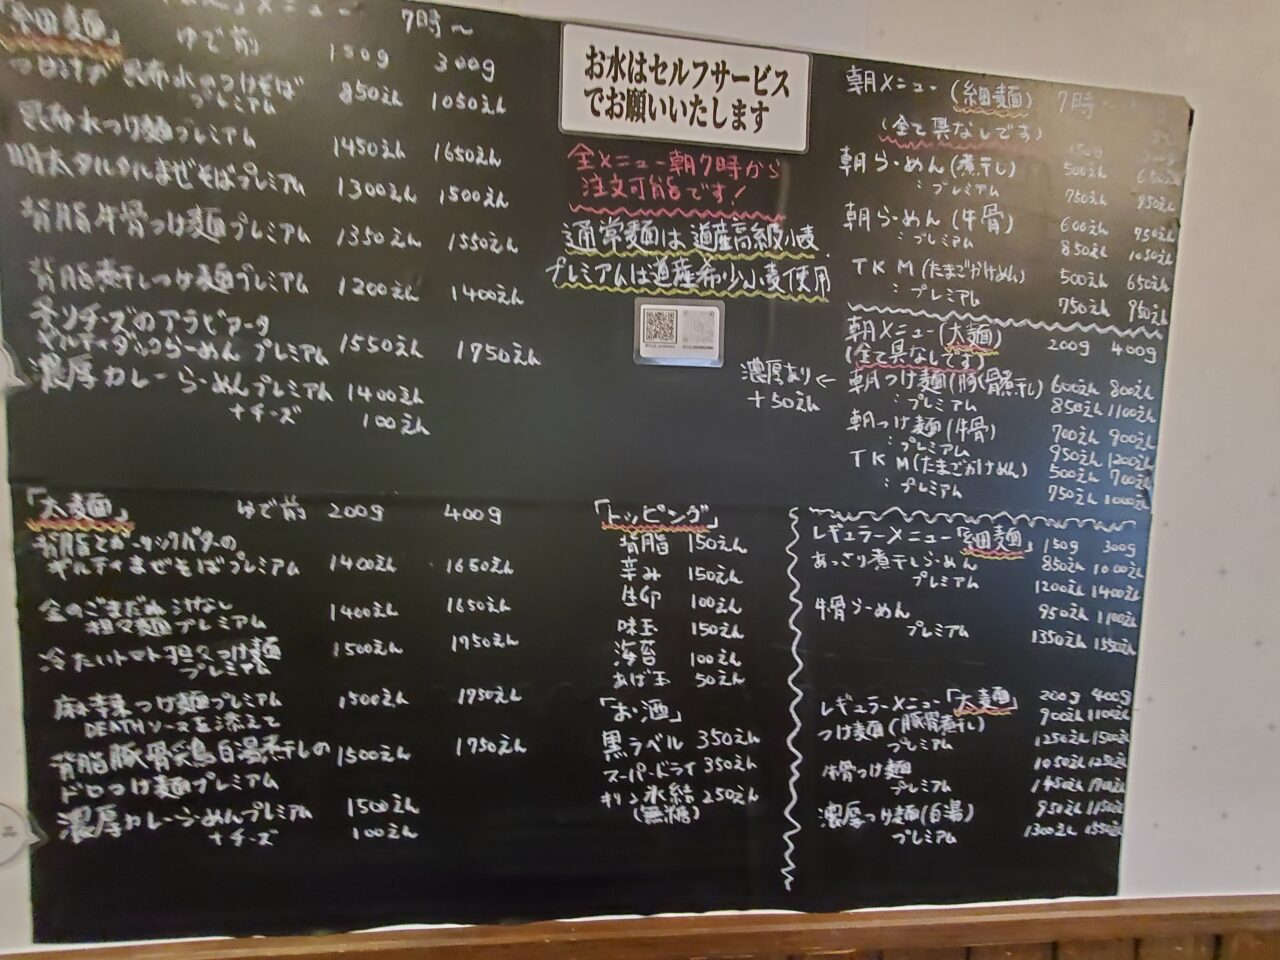 メニュー 7時〜
「細麺」 ゆで前 150g 300g
昆布水のつけそば
プレミアム 850えん 1050えん
昆布水つけ麺プレミアム 1450えん 1650えん
明太タルタルまぜそばプレミアム 1300えん 1500えん
背脂牛骨つけ麺プレミアム 1350えん 1550えん
背脂煮干しつけ麺プレミアム 1200えん 1400えん
チーズのアラビアータ
ギルティダックらーめん プレミアム 1550えん 1750えん
濃厚カレーらーめんプレミアム 1400えん
+チーズ 100えん
「太麺」 ゆで前 200g 400g
背脂とガーリックバターの
ギルティまぜそばプレミアム 1400えん 1650えん
金のごまだれ汁なし
担々麺プレミアム 1400えん 1650えん
冷たいトマト担々つけ麺
プレミアム 1500えん 1750えん
麻辣つけ麺プレミアム 1500えん 1750えん
DEATHソースを添えて
背脂豚骨鶏白湯煮干しの
ドロつけ麺プレミアム 1500えん 1750えん
濃厚カレーらーめんプレミアム 1500えん
+チーズ 100えん
お水はセルフサービス
でお願いいたします
全メニュー朝7時から
注文可能です!
通常麺は道産高級小麦、
プレミアムは道産希少小麦使用
濃厚あり←
+50えん
「トッピング」
背脂 150えん
辛み 150えん
生卵 100えん
味玉 150えん
海苔 100えん
あげ玉 50えん
「お酒」
黒ラベル 350えん
スーパードライ 350えん
キリン氷結 250えん
(無糖)
朝メニュー(細麺) 7時
(全て具なしです) 150g
朝らーめん(煮干し) 500えん 650えん
〃プレミアム 750えん 950えん
朝らーめん(牛骨) 600えん 750えん
〃プレミアム 850えん 1050えん
TKM(たまごかけめん) 500えん 650えん
〃プレミアム 750えん 950えん
朝メニュー(太麺) 200g 400g
(全て具なしです)
朝つけ麺(豚骨煮干し) 600えん 800えん
〃プレミアム 850えん 1100えん
朝つけ麺(牛骨) 700えん 900えん
〃プレミアム 950えん 1200えん
TKM(たまごかけめん) 500えん 700えん
〃プレミアム 750えん 1000えん
レギュラーメニュー「細麺」 150g 300g
あっさり煮干しらーめん 850えん 1000えん
プレミアム 1200えん 1400えん
牛骨らーめん 950えん 1100えん
プレミアム 1350えん 1550えん
レギュラーメニュー「太麺」 200g 400g
つけ麺(豚骨煮干し) 900えん 1100えん
プレミアム 1250えん 1500えん
牛骨つけ麺 1050えん 1250えん
プレミアム 1450えん 1700えん
濃厚つけ麺(白湯) 950えん 1150えん
プレミアム 1300えん 1550えん